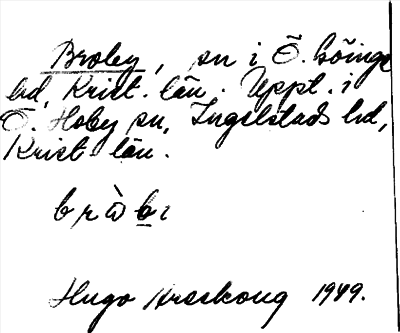 Broby, sn i Ö. Göinge
hd, Krist. län. Uppt. i
Ö. Hoby sn, Ingelstads hd,
Krist län.
bròbi
Hugo Areskoug 1949.